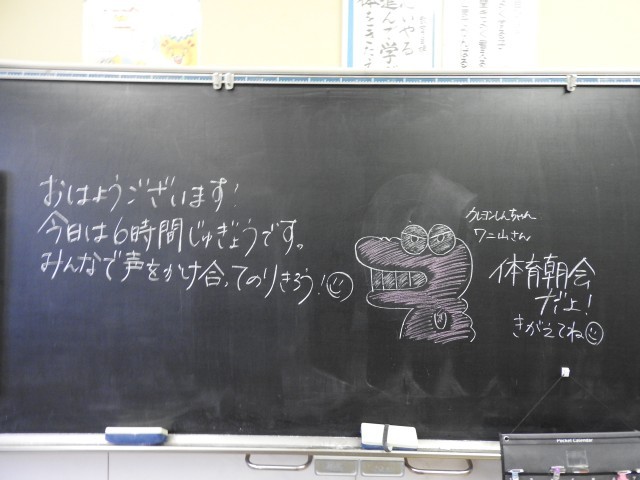 おはようございます!
今日は6時間じゅぎょうです。
みんなで声をかけ合ってのりきろう!
クレヨンしんちゃん
ワニ山さん
体育朝会
だよ!
きがえてね
Pocket Calendar